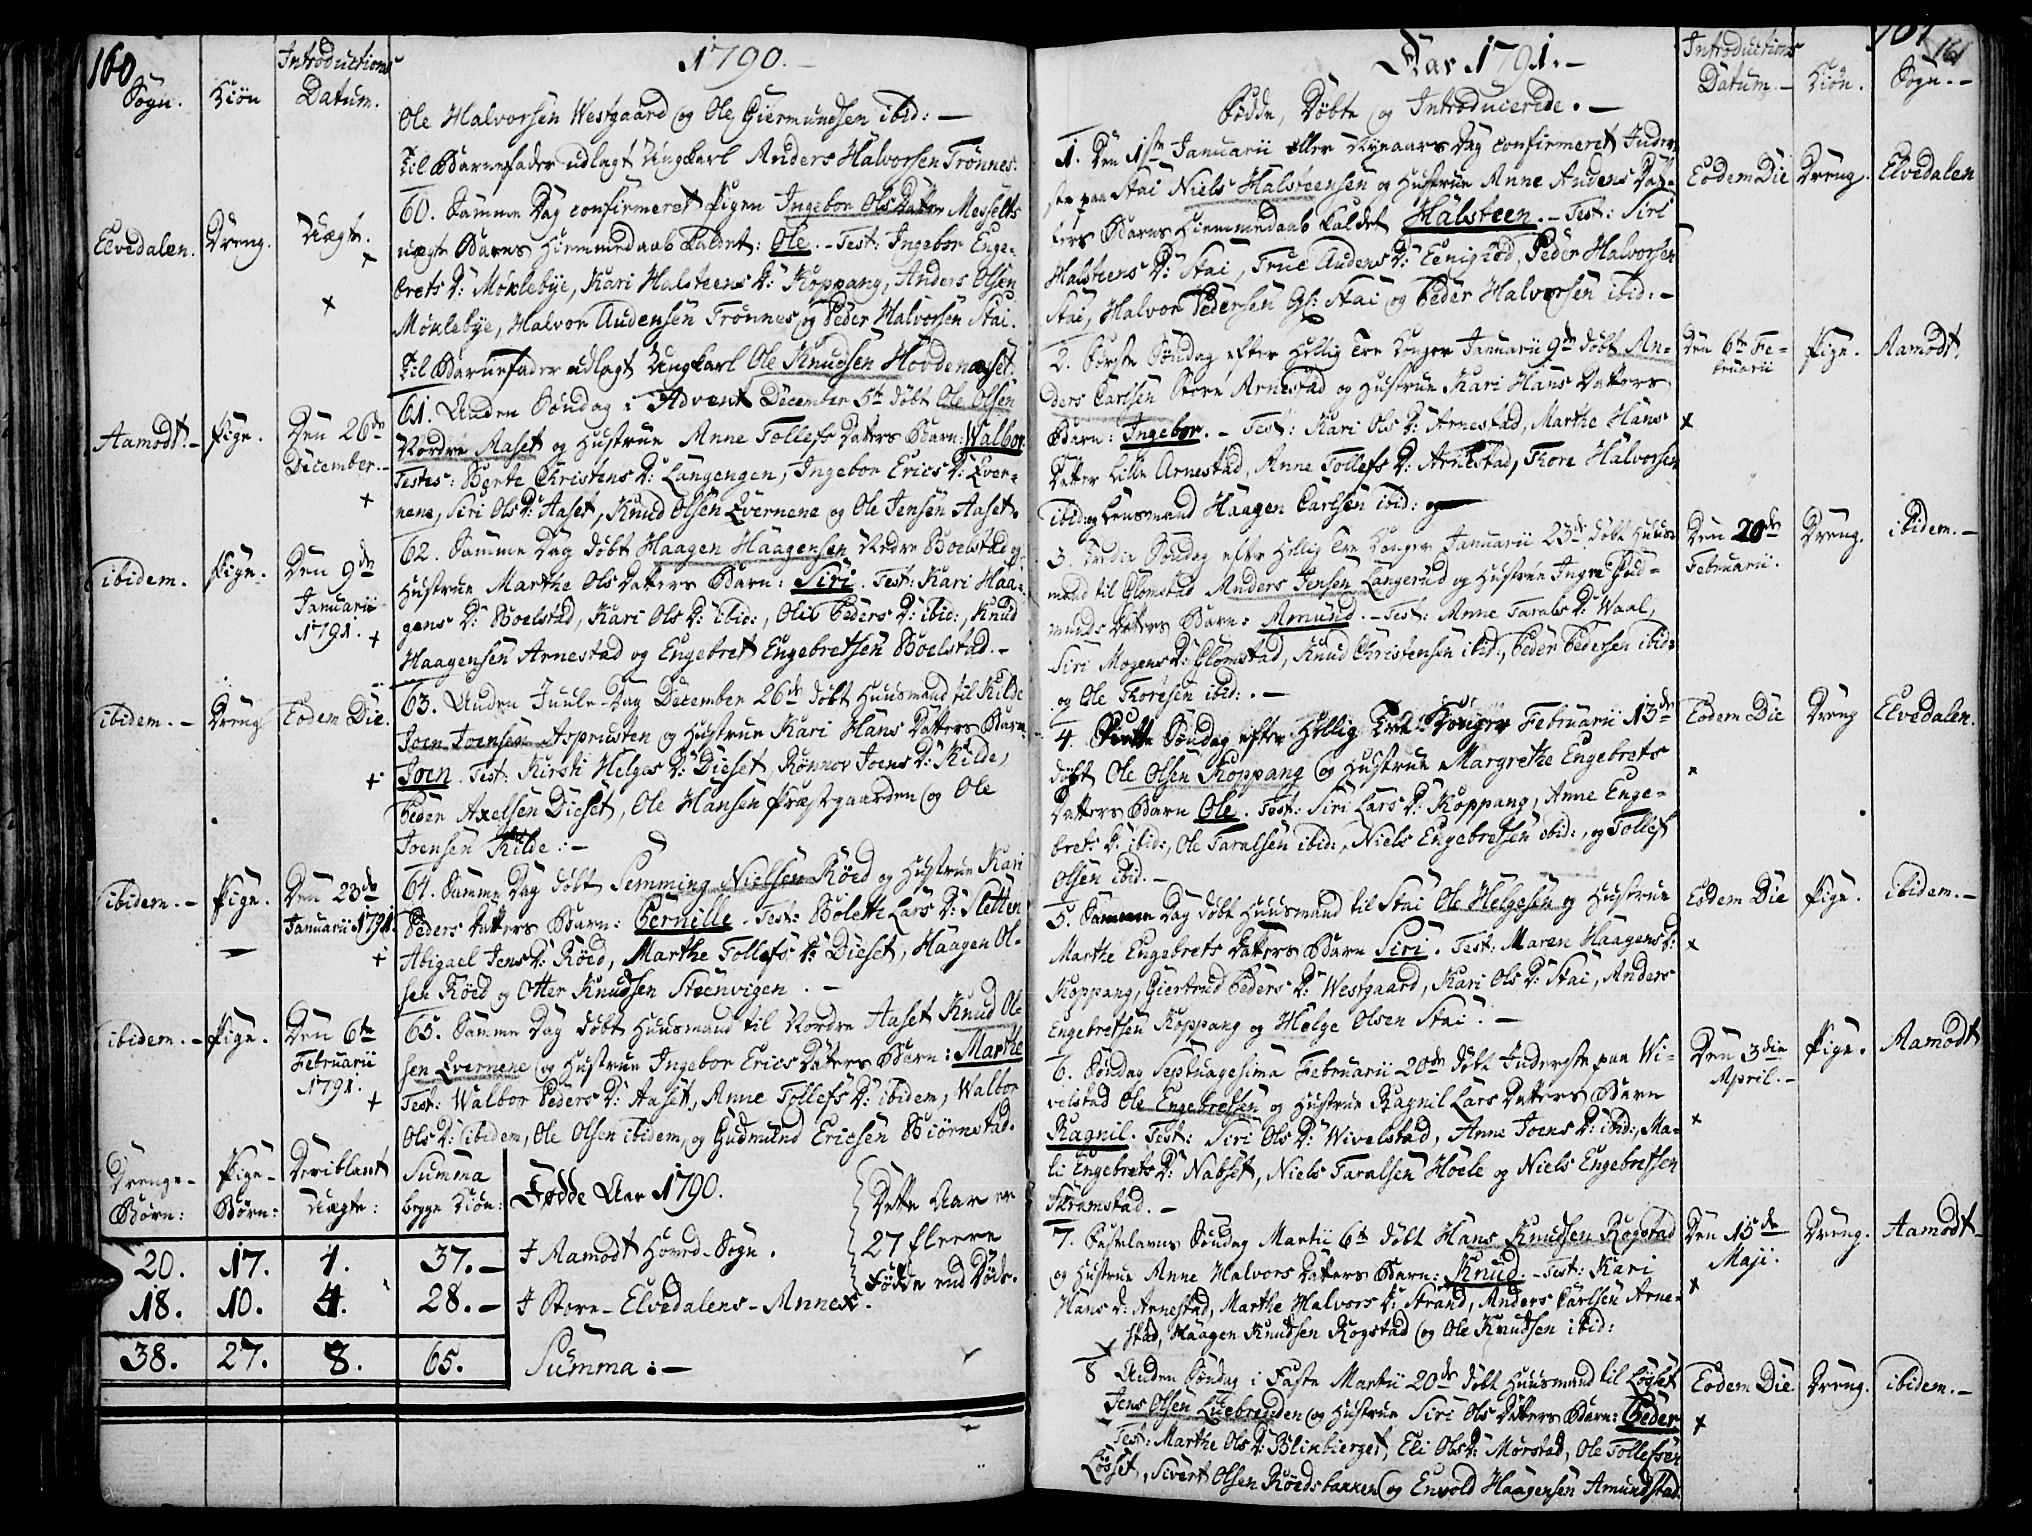 160
Sogn. Kiön Introductions Datum. 1790.
Ole Halvorsen Westgaard og Ole Giermundsen ibid: —
Til Barnefader udlagt Ungkarl Anders Halvorsen Trönnes.
60. Samme Dag confirmeret Pigen Ingebor Ols Datter Messelts
Elvedalen. Dreng. Uægte. uægte Barns Hiemmedaab kaldet: Ole. - Test: Ingebor Enge-
brets D: Möklebye, Kari Halsteens D: Koppang, Anders Olsen
Möklebye, Halvor Audensen Trönnes og Peder Halvorsen Stai.
Til Barnefader udlagt Ungkarl Ole Knudsen Hovdenæset.
61. Anden Söndag i Advent December 5te döbt Ole Olsen
Aamodt. - Pige. Den 26de December. - Nordre Aaset og Hustrue Anne Tollefs Datters Barn: Walbor.
Testes: Berte Christens D: Langengen, Ingebor Erics D: Ever-
nene, Siri Ols D: Aaset, Knud Olsen Evernene og Ole Jensen Aaset.
62. Samme Dag döbt Haagen Haagensen Nordre Boelstad og
ibidem. Pige. Den 9de Januarii 1791. Hustrue Marthe Ols Datters Barn: Siri. Test: Kari Haa-
gens D: Boelstad, Kari Ols D: ibid:, Oliv Peders D: ibid:, Knud
Haagensen Arnestad og Engebret Engebretsen Boelstad. -
63. Anden Juule-Dag December 26de döbt Huusmand til Kilde
ibidem. - Dreng Eodem Die. Joen Joensen Asprusten og Hustrue Kari Hans Datters Barn
Joen. Test: Kirsti Helges D: Dieset, Rönnov Joens D: Kilde,
Peder Axelsen Dieset, Ole Hansen Præstgaarden og Ole
Joensen Kilde: -
64. Samme Dag döbt Semming Nielsen Röed og Hustrue Kari
ibidem. - Pige. Den 23de Januarii 1791. Peders Datters Barn: Pernille. - Test: Bolette Lars D: Sletten
Abigael Jens D: Röed, Marthe Tollefs D: Dieset, Haagen Ol-
sen Röed og Otter Knudsen Steenvigen. -
65. Samme Dag döbt Huusmand til Nordre Aaset Knud Ol-
ibidem. - Pige. Den 6te Februarii 1791. sen Evernene og Hustrue Ingebor Erics Datters Barn: Marthe
Test: Walbor Peders D: Aaset, Anne Tollefs D: ibidem, Walbor
Ols D: ibidem, Ole Olsen ibidem, og Gudmund Ericsen Biörnstad.
Drenge-Börn: Pige-Börn: Deriblant Uægte: Summa begge Kiön: Födde Aar 1790. Dette Aar er
20. 17. 4. 37. - I Aamodt Hoved-Sogn. 27 fleere
18. 10. 4. 28. - I Store-Elvedalens-Annex. Födde end Döde.
38. 27. 8. 65. Summa: -
161
Aar 1791. - Introductions Datum. - Kiön. Sogn. -
Födde, Döbte og Introducerede. -
1. Den 1ste Januarii eller Nyaars Dag confirmeret Inder-
ste paa Stai Niels Halsteensen og Hustrue Anne Audens Dat- Eodem Die Dreng. Elvedalen
ters Barns Hiemmedaab kaldet Halsteen. - Test: Siri
Halsteens D: Stai, True Audens D: Eenigröd, Peder Halvorsen
Stai, Halvor Pedersen Gs: Stai og Peder Halvorsen ibid: -
2. Förste Söndag efter Hellig Tre Konger Januarii 9de döbt An- Den 6te Februarii Pige. Aamodt.
ders Carlsen Store Arnestad og Hustrue Kari Hans Datters
Barn: Ingebor. - Test: Kari Ols D: Arnestad, Marthe Hans
Datter Lille Arnestad, Anne Tollefs D: Arnestad, Thore Halvorsen
ibid: og Lensmand Haagen Carlsen ibid:
3. Tredie Söndag efter Hellig Tre Konger Januarii 23de döbt Huus- Den 20de Februarii. Dreng. ibidem. -
mand til Glomstad Anders Jensen Langerud og Hustrue Ingre Gud-
munds Datters Barn: Amund. - Test: Anne Taralds D: Waal,
Siri Mogens D: Glomstad, Knud Christensen ibid:, Peder Pedersen ibid:
og Ole Thoresen ibid:. -
4. Siette Söndag efter Hellig Tre Konger Februarii 13de Eodem Die Dreng Elvedalen.
döbt Ole Olsen Koppang og Hustrue Margrethe Engebrets
Datters Barn Ole. Test: Siri Lars D: Koppang, Anne Enge-
brets D: ibid:, Ole Taralsen ibid:, Niels Engebretsen ibid:, og Tollef
Olsen ibid. -
5. Samme Dag döbt Huusmand til Stai Ole Helgesen og Hustrue Eodem Die Pige. ibidem. -
Marthe Engebrets Datters Barn Siri. Test: Maren Haagens D:
Koppang, Giertrud Peders D: Westgaard, Kari Ols D: Stai, Anders
Engebretsen Koppang og Helge Olsen Stai. -
6. Söndag Septuagesima Februarii 20de döbt Inderste paa Wi- Den 3die April. - Pige. Aamodt
velstad Ole Engebretsen og Hustrue Ragnil Lars Datters Barn
Ragnil. Test: Siri Ols D: Wivelstad, Anne Joens D: ibid:, Ma-
li Engebrets D: Nabset, Niels Taralsen Hoele og Niels Engebretsen
Skramstad. -
7. Fastelavns Söndag Martii 6te döbt Hans Knudsen Rogstad Den 15de Maji. Dreng. Aamodt
og Hustrue Anne Halvors Datters Barn: Knud. - Test: Kari
Hans D: Arnestad, Marthe Halvors D: Strand, Anders Carlsen Arne-
stad, Haagen Knudsen Rogstad og Ole Knudsen ibid:
8 Anden Söndag i Faste Martii 20de döbt Huusmand til Lösset Eodem Die Dreng. ibidem. -
Jens Olsen Luebrenden og Hustrue Siri Ols Datters Barn: Peder
Test: Marthe Ols D: Blinbierget, Eli Ols D: Mörstad, Ole Tollefsen
Lösset, Sivert Olsen Röedsbakken og Envold Haagensen Amundstad.